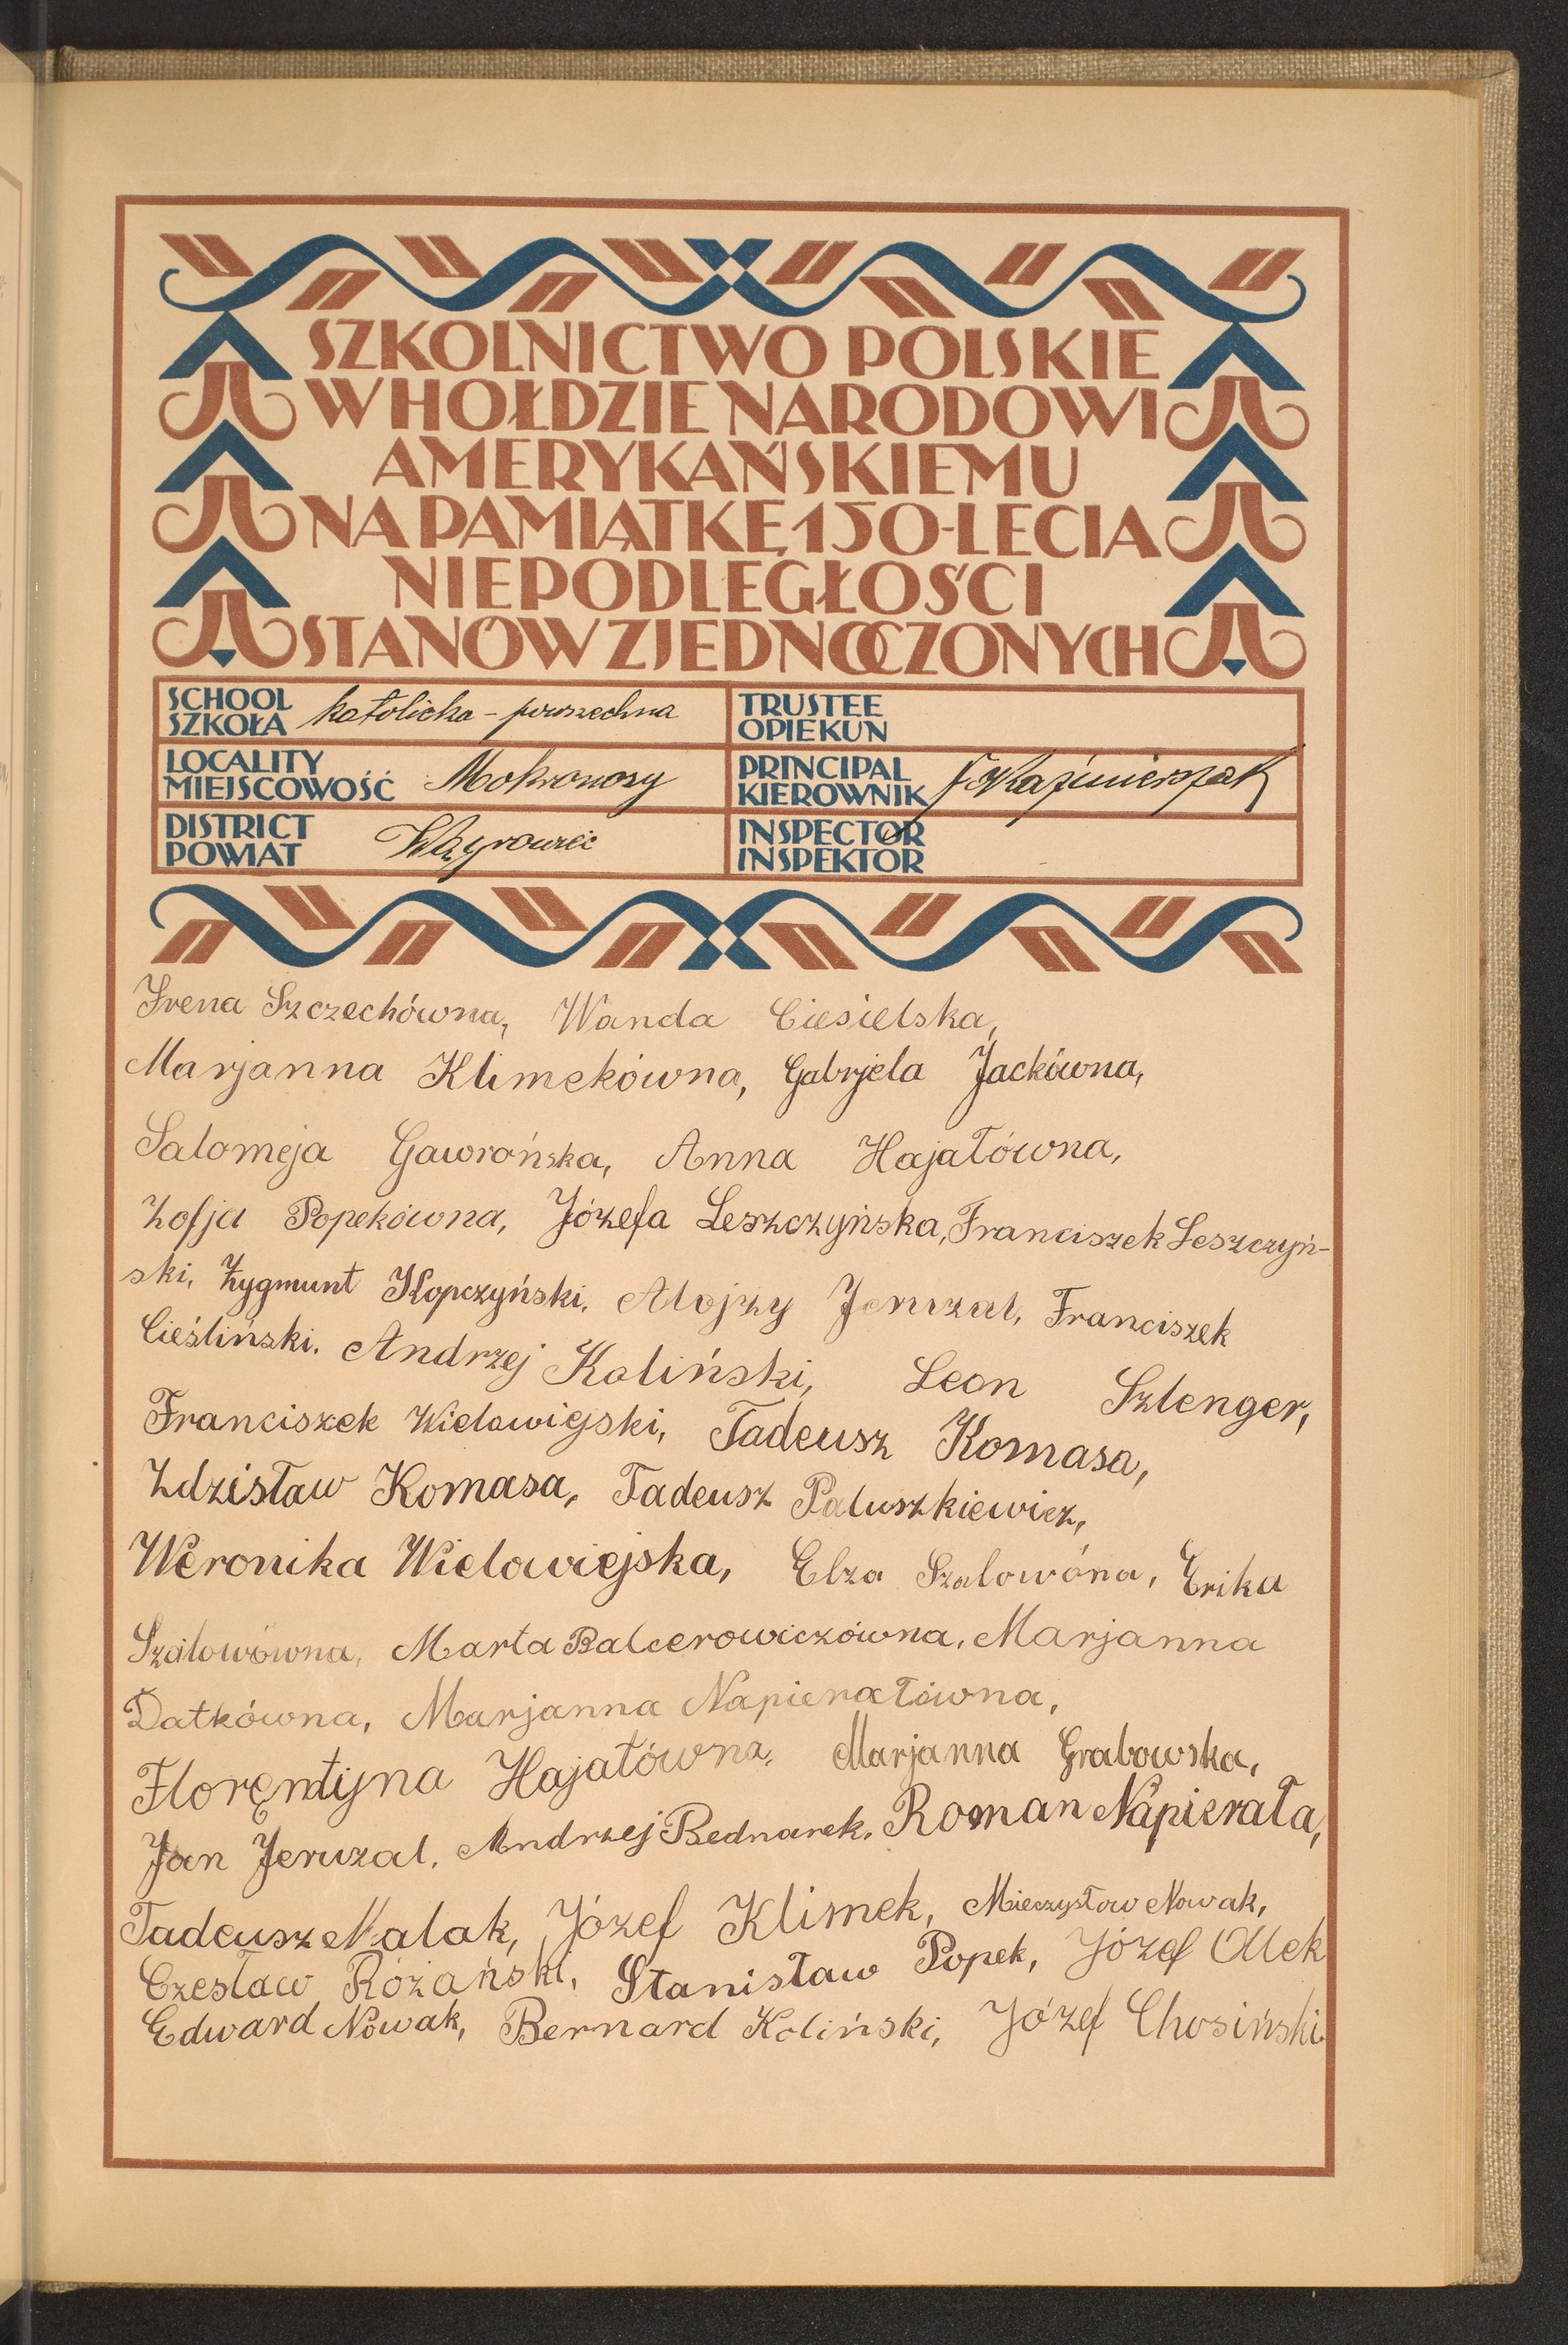 SZKOLNICTWO POLSKIE
W HOŁDZIE NARODOWI
AMERYKAŃSKIEMU
NA PAMIĄTKĘ 150-LECIA
NIEPODLEGŁOŚCI
STANÓW ZJEDNOCZONYCH
SCHOOL
SZKOŁA katolicka - powszechna
LOCALITY
MIEJSCOWOŚĆ Mokronosy
DISTRICT
POWIAT Wągrowiec
TRUSTEE
OPIEKUN
PRINCIPAL
KIEROWNIK Kaźmierczak
INSPECTOR
INSPEKTOR
Irena Szczechówna, Wanda Ciesielska,
Marjanna Klimekówna, Gabrjela Jackówna,
Salomeja Gawrońska, Anna Hajałówna,
Zofja Popekówna, Józefa Leszczyńska, Franciszek Leszczyń-
ski, Zygmunt Kopczyński. Alojzy Jeruzal, Franciszek
Cieśliński. Andrzej Koliński, Leon Szlenger,
Franciszek Wielowiejski, Tadeusz Komasa,
Zdzisław Komasa, Tadeusz Paluszkiewicz,
Weronika Wielowiejska, Elza Szalowóna, Erika
Szalowówna, Marta Balcerowiczówna, Marjanna
Datkówna, Marjanna Napierałówna,
Florentyna Hajałówna, Marjanna Grabowska,
Jan Jeruzal, Andrzej Bednarek, Roman Napierała,
Tadeusz Malak, Józef Klimek, Mieczysław Nowak,
Czesław Różański, Stanisław Popek, Józef Ollek
Edward Nowak, Bernard Koliński, Józef Chosiński